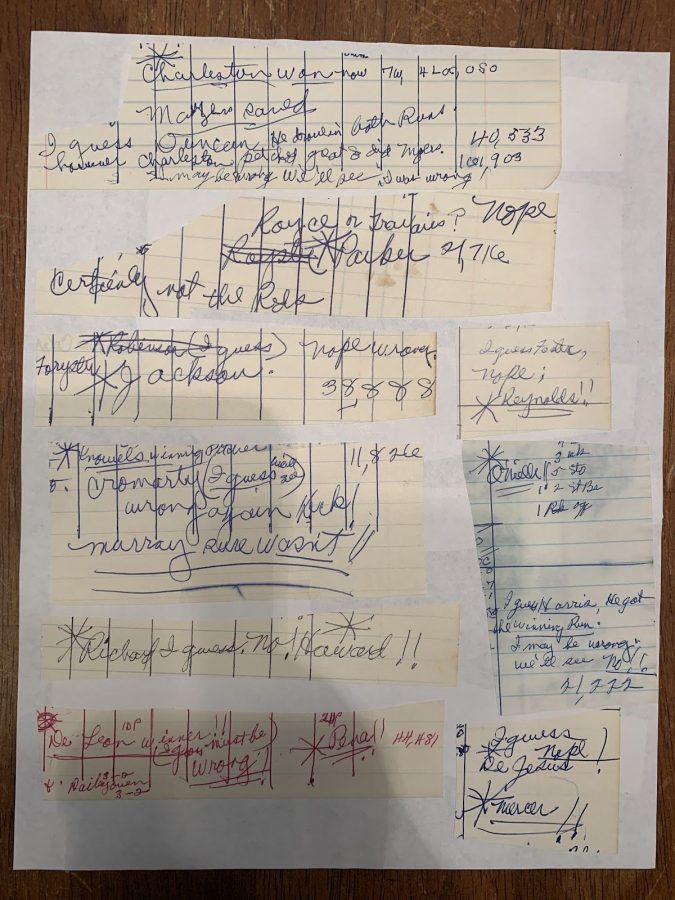 Charleston won now
Mazzers saved
I guess Duncan, He drove in both Runs. 40,533
however Charleston pitched great & did Myers. 101,903
I may be wrong We'll see. I was wrong
Royce or Travies? Nope
Parker 21,716
Certainly not the Reds
Robinson (I guess) Nope wrong.
Jackson. 38,888
I guess Foster,
Nope;
Reynolds!!
Knowels winning pitcher 11,826
Cromartie (I guess we'll see)
wrong again Heck!
Murray sure wasn't!!
O'Neill
1 Rbi
I guess Harris, He got
the winning Run.
I may be wrong.
we'll see No!!
21,222
Richard I guess. No! Howard!!
De Leon winner!! 1DP 2DP
(I guess must be wrong) Pena!! 44,481
3-2
I guess
Nope!
De Jesus
Mercer!!